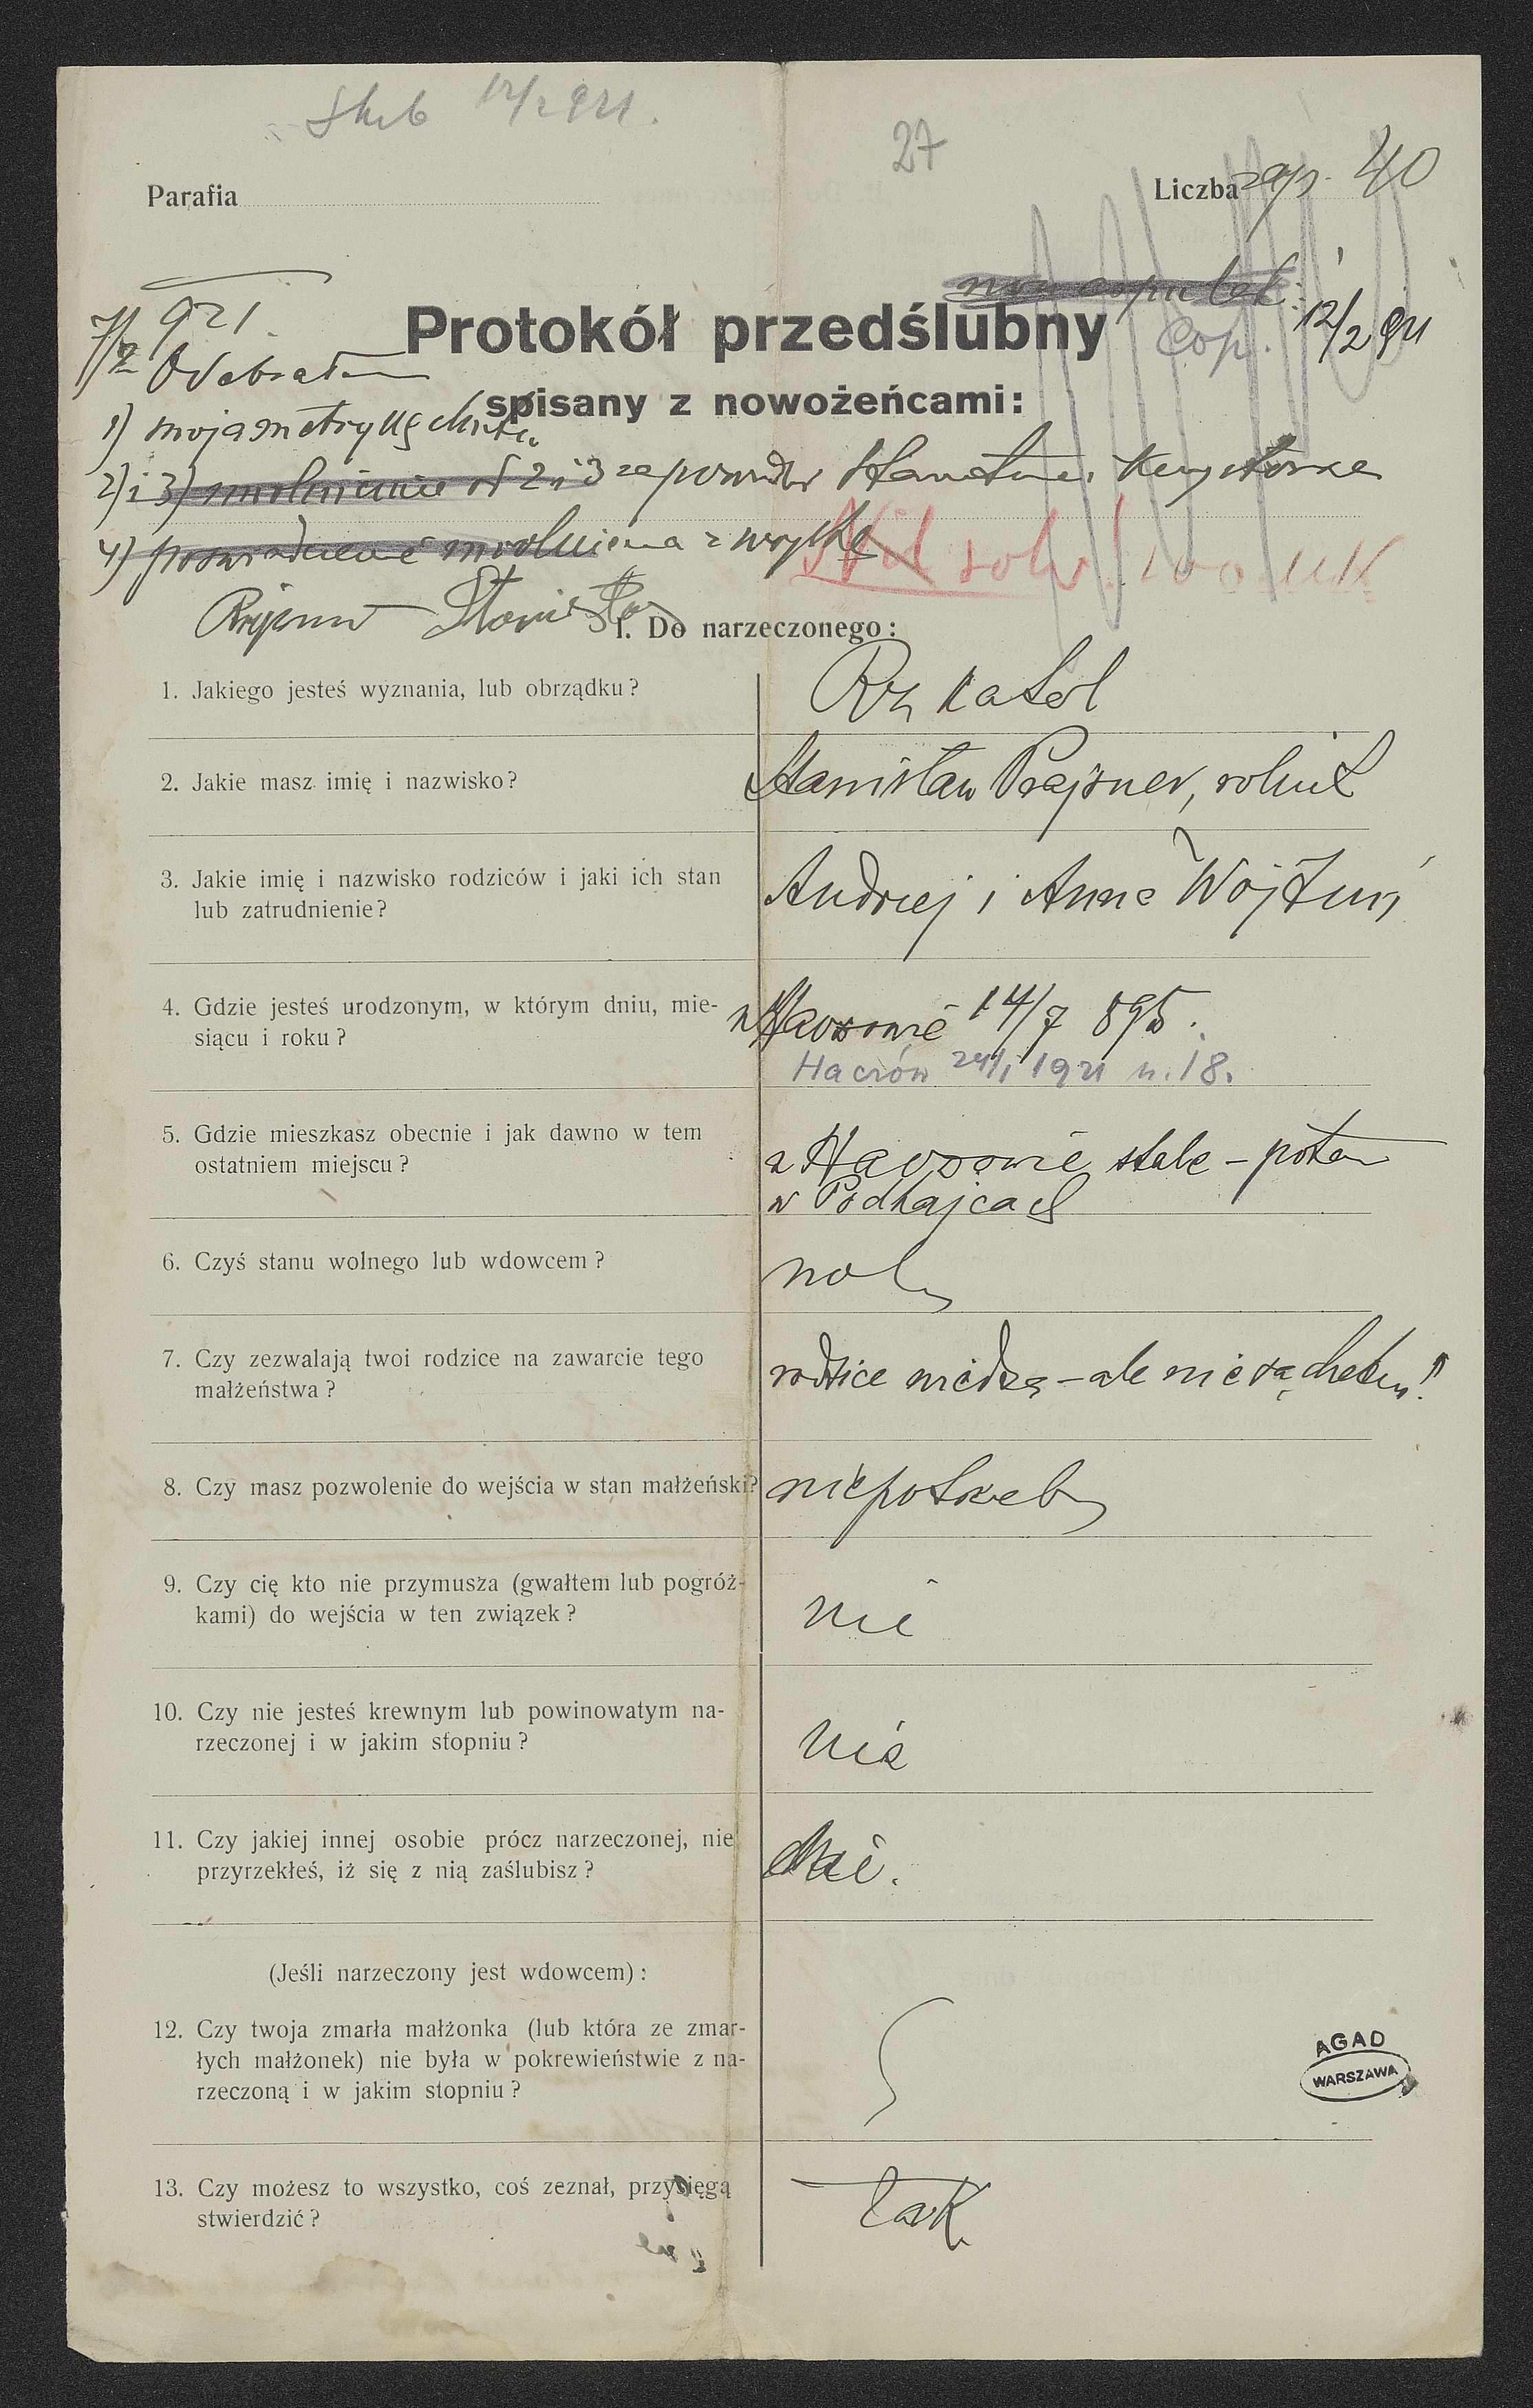 Ślub 12/2 921.
27
Parafia
Liczba zap. 40
7/2 921.
Cop. 12/2 921
Protokół przedślubny
Odebrałem
spisany z nowożeńcami:
1) moją metrykę chrztu
2) i 3) od 2 i 3 zapowiedzi
4) zwolnienia z wojska
Nil solv. 100 MK
Stanisław
I. Do narzeczonego:
1. Jakiego jesteś wyznania, lub obrządku?
Rz. katol
2. Jakie masz imię i nazwisko?
Stanisław Prajsner, rolnik
3. Jakie imię i nazwisko rodziców i jaki ich stan
lub zatrudnienie?
Andrzej i Anna Wojtuń
4. Gdzie jesteś urodzonym, w którym dniu, mie-
siącu i roku?
w Haczowie 14/7 895.
Haczów 24/1 1921 n. 18.
5. Gdzie mieszkasz obecnie i jak dawno w tem
ostatniem miejscu?
w Haczowie stale – potem
w Podhajcach
6. Czyś stanu wolnego lub wdowcem?
wolny
7. Czy zezwalają twoi rodzice na zawarcie tego
małżeństwa?
rodzice wiedzą – ale nie są chętni!
8. Czy masz pozwolenie do wejścia w stan małżeński?
niepotrzeba
9. Czy cię kto nie przymusza (gwałtem lub pogróż-
kami) do wejścia w ten związek?
nie
10. Czy nie jesteś krewnym lub powinowatym na-
rzeczonej i w jakim stopniu?
nie
11. Czy jakiej innej osobie prócz narzeczonej, nie
przyrzekłeś, iż się z nią zaślubisz?
Nie.
(Jeśli narzeczony jest wdowcem):
12. Czy twoja zmarła małżonka (lub która ze zmar-
łych małżonek) nie była w pokrewieństwie z na-
rzeczoną i w jakim stopniu?
AGAD
WARSZAWA
13. Czy możesz to wszystko, coś zeznał, przysięgą
stwierdzić?
Tak